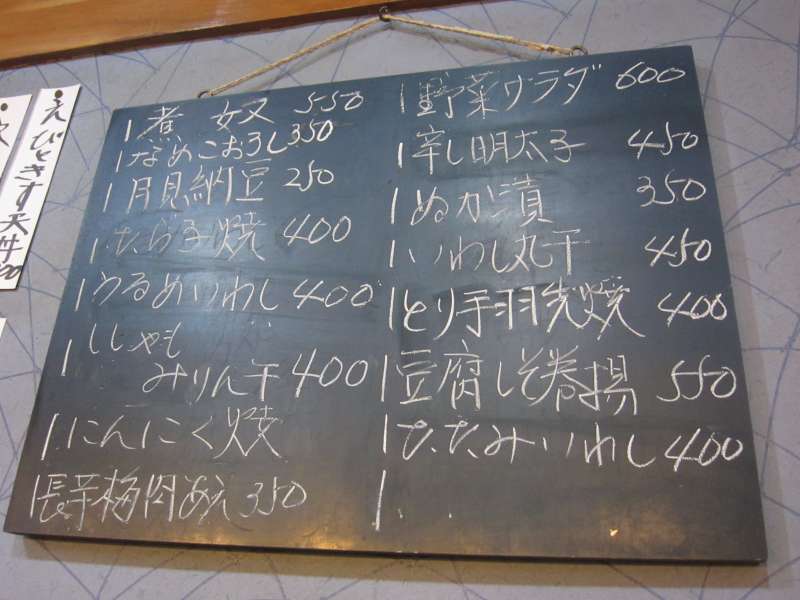 煮 奴 550
なめこおろし 350
月見納豆 250
たら子焼 400
うるめいわし 400
ししゃも
みりん干 400
にんにく焼
長芋梅肉あえ 350
野菜サラダ 600
辛し明太子 450
ぬか漬 350
いわし丸干 450
とり手羽先焼 400
豆腐しそ巻揚 550
たたみいわし 400
えびときす天丼